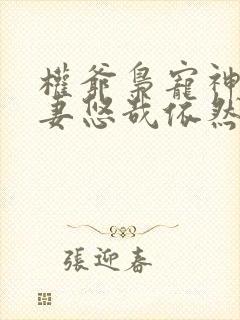 權爺梟寵神
妻悠哉依然
張迎春